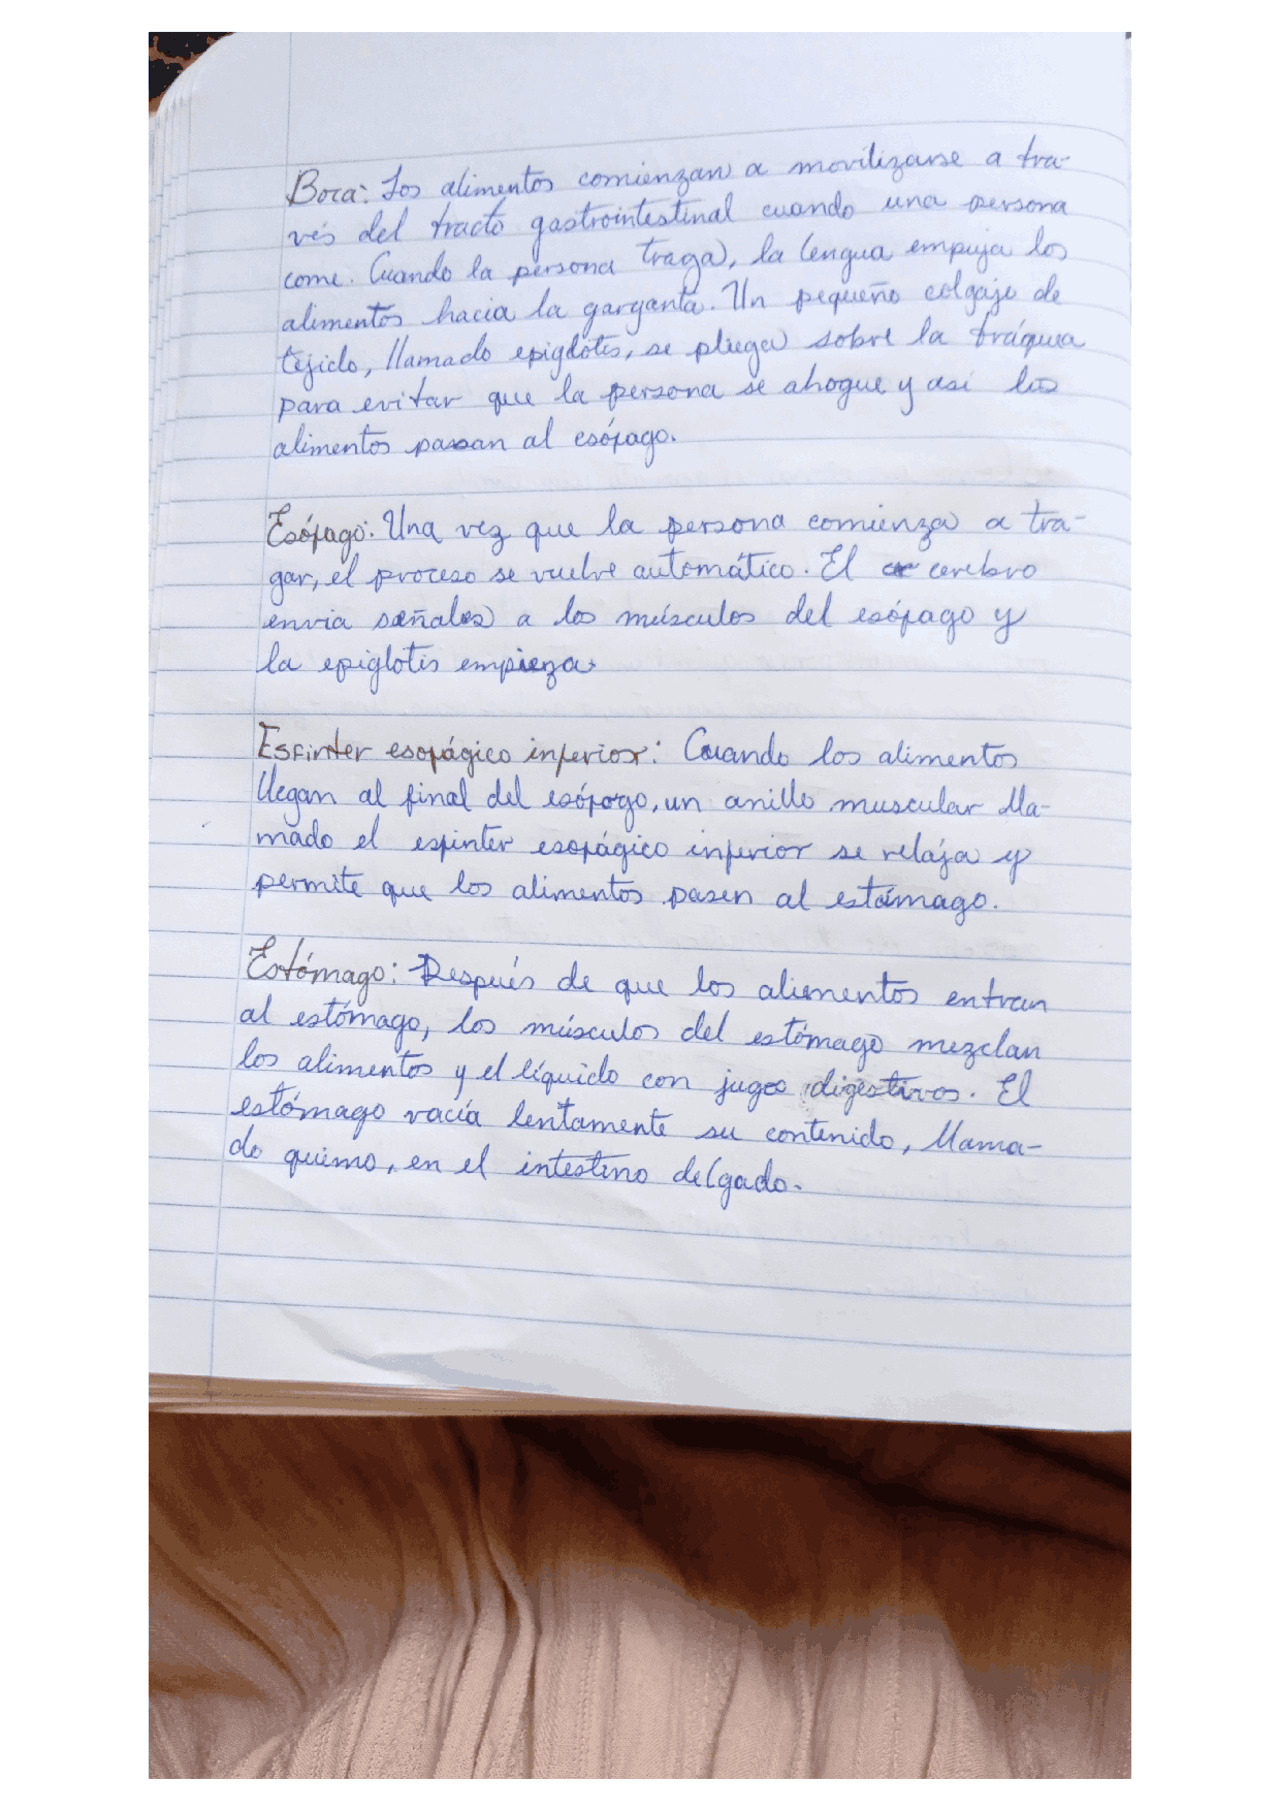 Boca: Los alimentos comienzan a movilizarse a tra-
vés del tracto gastrointestinal cuando una persona
come. Cuando la persona traga, la lengua empuja los
alimentos hacia la garganta. Un pequeño colgajo de
tejido, llamado epiglotis, se pliega sobre la tráquea
para evitar que la persona se ahogue y asi los
alimentos pasan al esófago.
Esófago: Una vez que la persona comienza a tra-
gar, el proceso se vuelve automático. El cerebro
envia señales a los músculos del esófago y
la epiglotis empieza.
Esfinter esofágico inferior: Cuando los alimentos
llegan al final del esófago, un anillo muscular lla-
mado el esfinter esofágico inferior se relaja y
permite que los alimentos pasen al estómago.
Estómago: Después de que los alimentos entran
al estómago, los músculos del estómago mezclan
los alimentos y el líquido con jugos digestivos. El
estómago vacía lentamente su contenido, llama-
do quimo, en el intestino delgado.